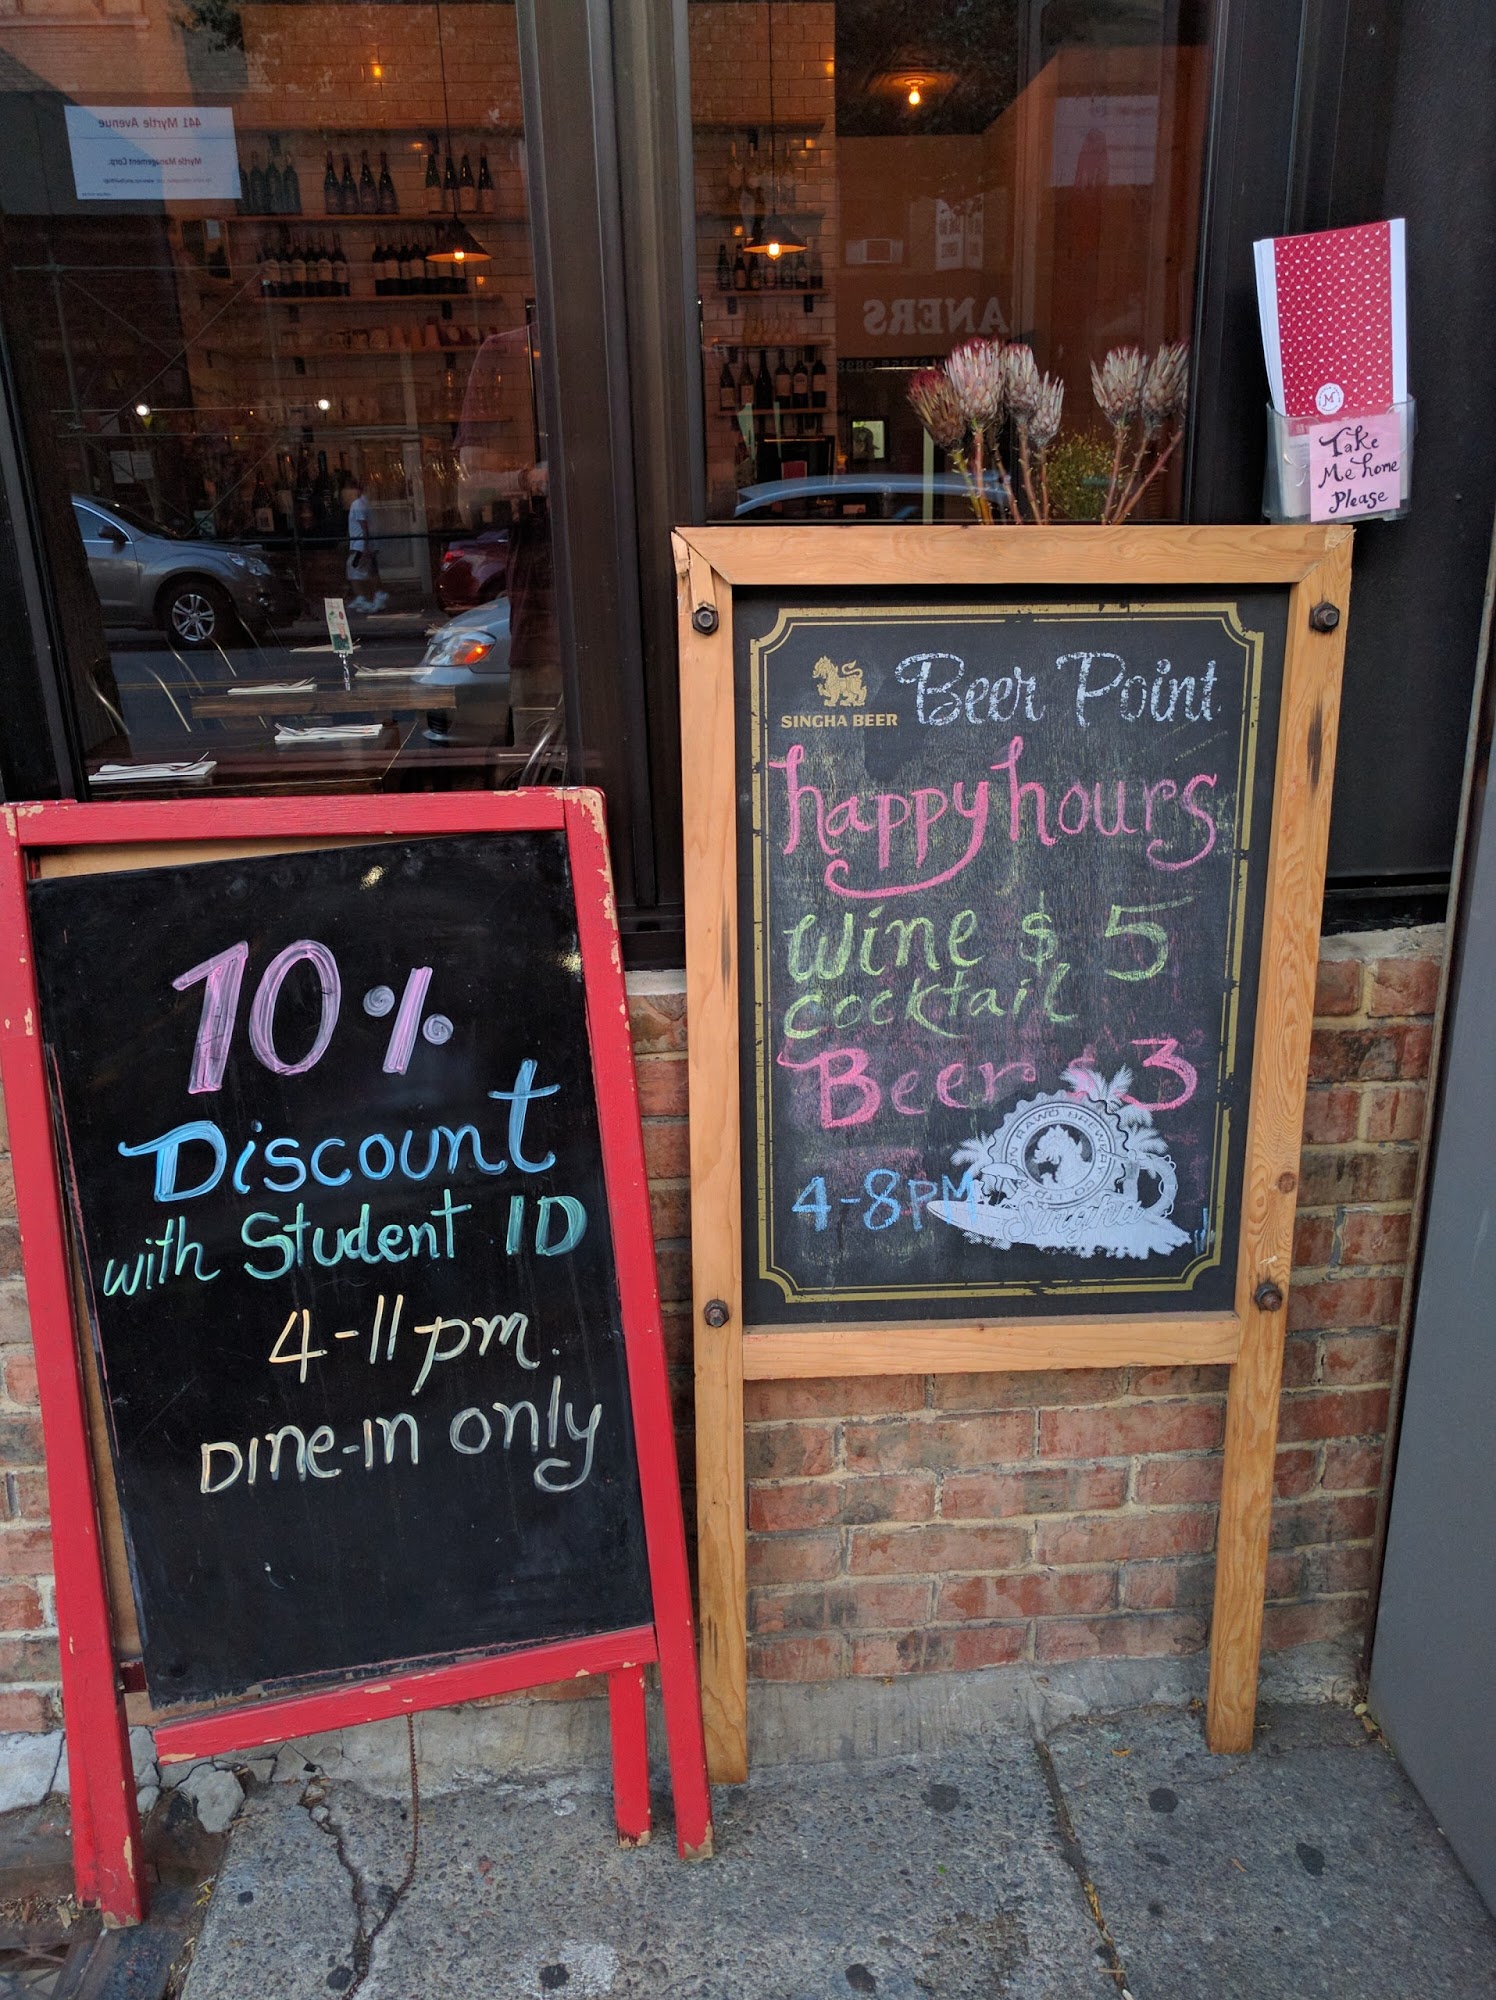 441 Myrtle Avenue
Myrtle Management Corp.
ANERS
M
Take
Me home
Please
10%
Discount
with Student ID
4-11pm.
Dine-in only
SINGHA BEER
Beer Point
happy hours
wine $ 5
cocktail
Beer $ 3
4-8PM
BOON RAWD BREWERY CO LTD.
Singha